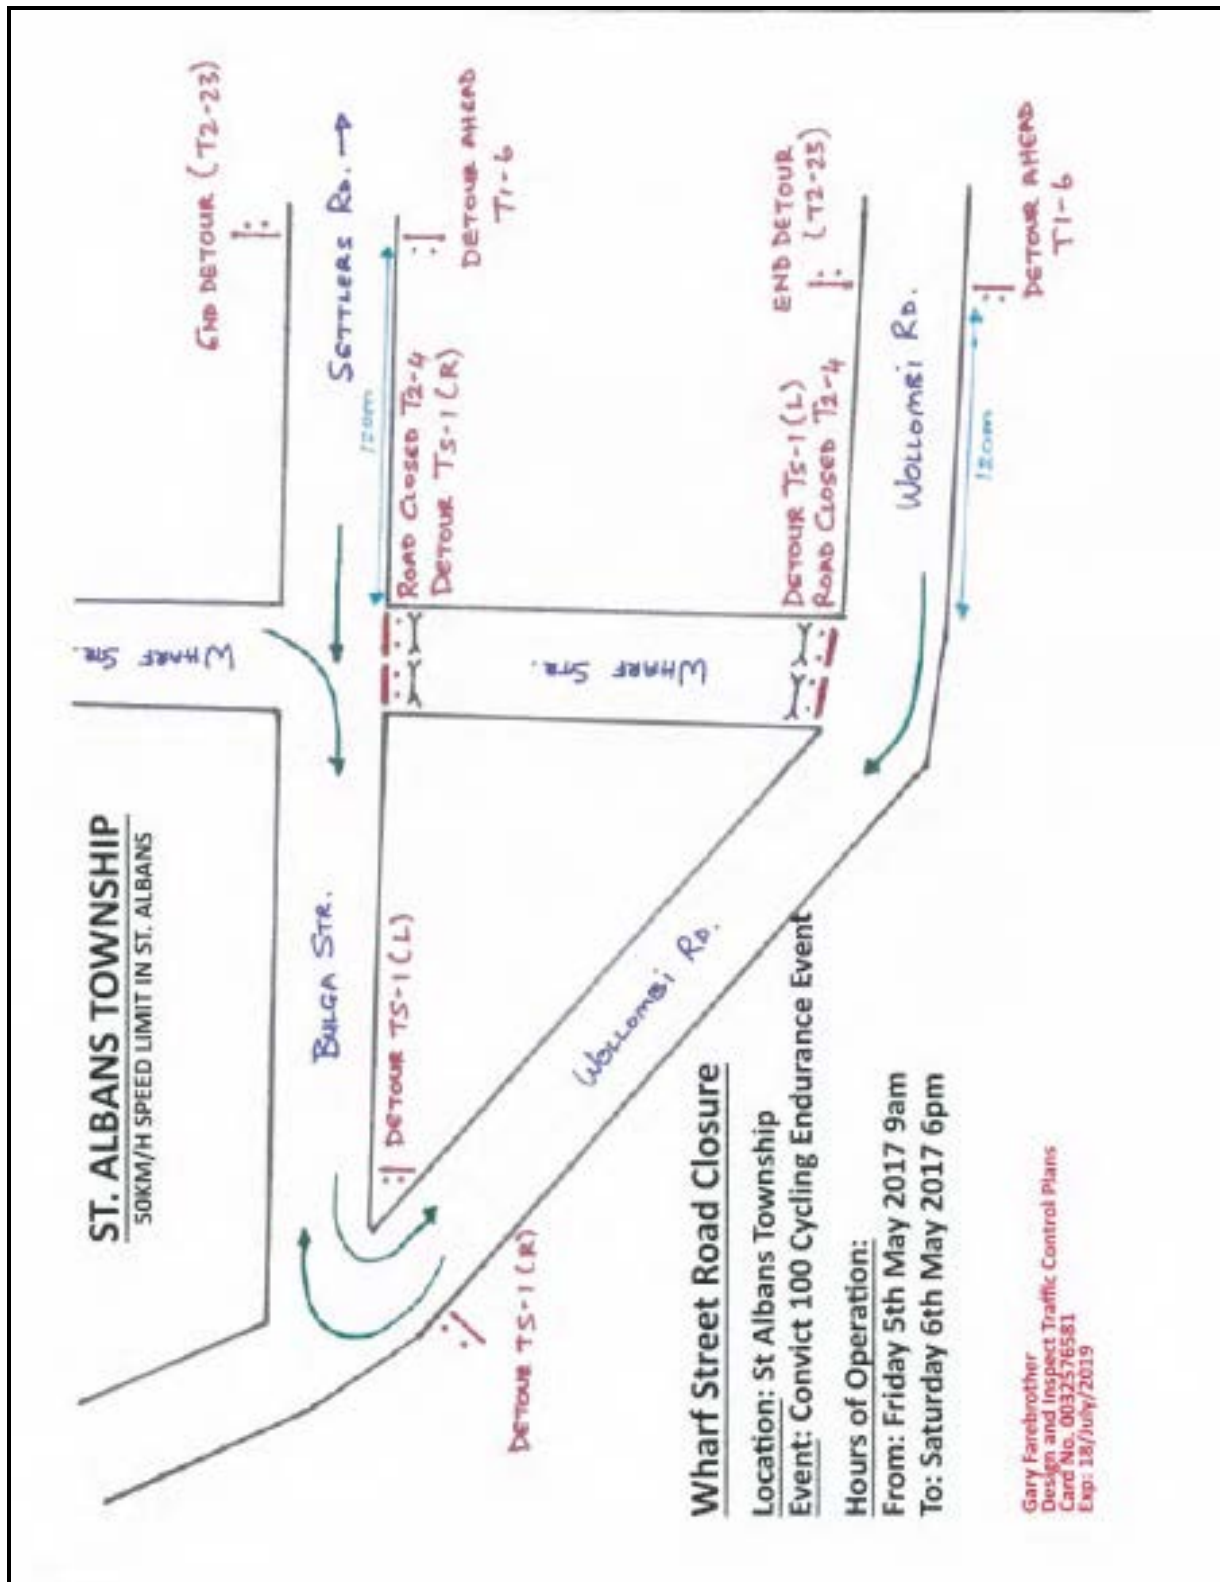 ST. ALBANS TOWNSHIP
50KM/H SPEED LIMIT IN ST. ALBANS
END DETOUR (T2-23)
SETTLERS RD. →
WHARF STR.
120m
DETOUR AHEAD
T1-6
BULGA STR.
ROAD CLOSED T2-4
DETOUR T5-1(R)
DETOUR T5-1(L)
WHARF
STR.
DETOUR T5-1(R)
WOLLOMBI RD.
DETOUR T5-1(L)
ROAD CLOSED T2-4
END DETOUR
(T2-23)
WOLLOMBI RD.
120m
DETOUR AHEAD
T1-6
Wharf Street Road Closure
Location: St Albans Township
Event: Convict 100 Cycling Endurance Event
Hours of Operation:
From: Friday 5th May 2017 9am
To: Saturday 6th May 2017 6pm
Gary Farebrother
Design and Inspect Traffic Control Plans
Card No. 0032576581
Exp: 18/July/2019